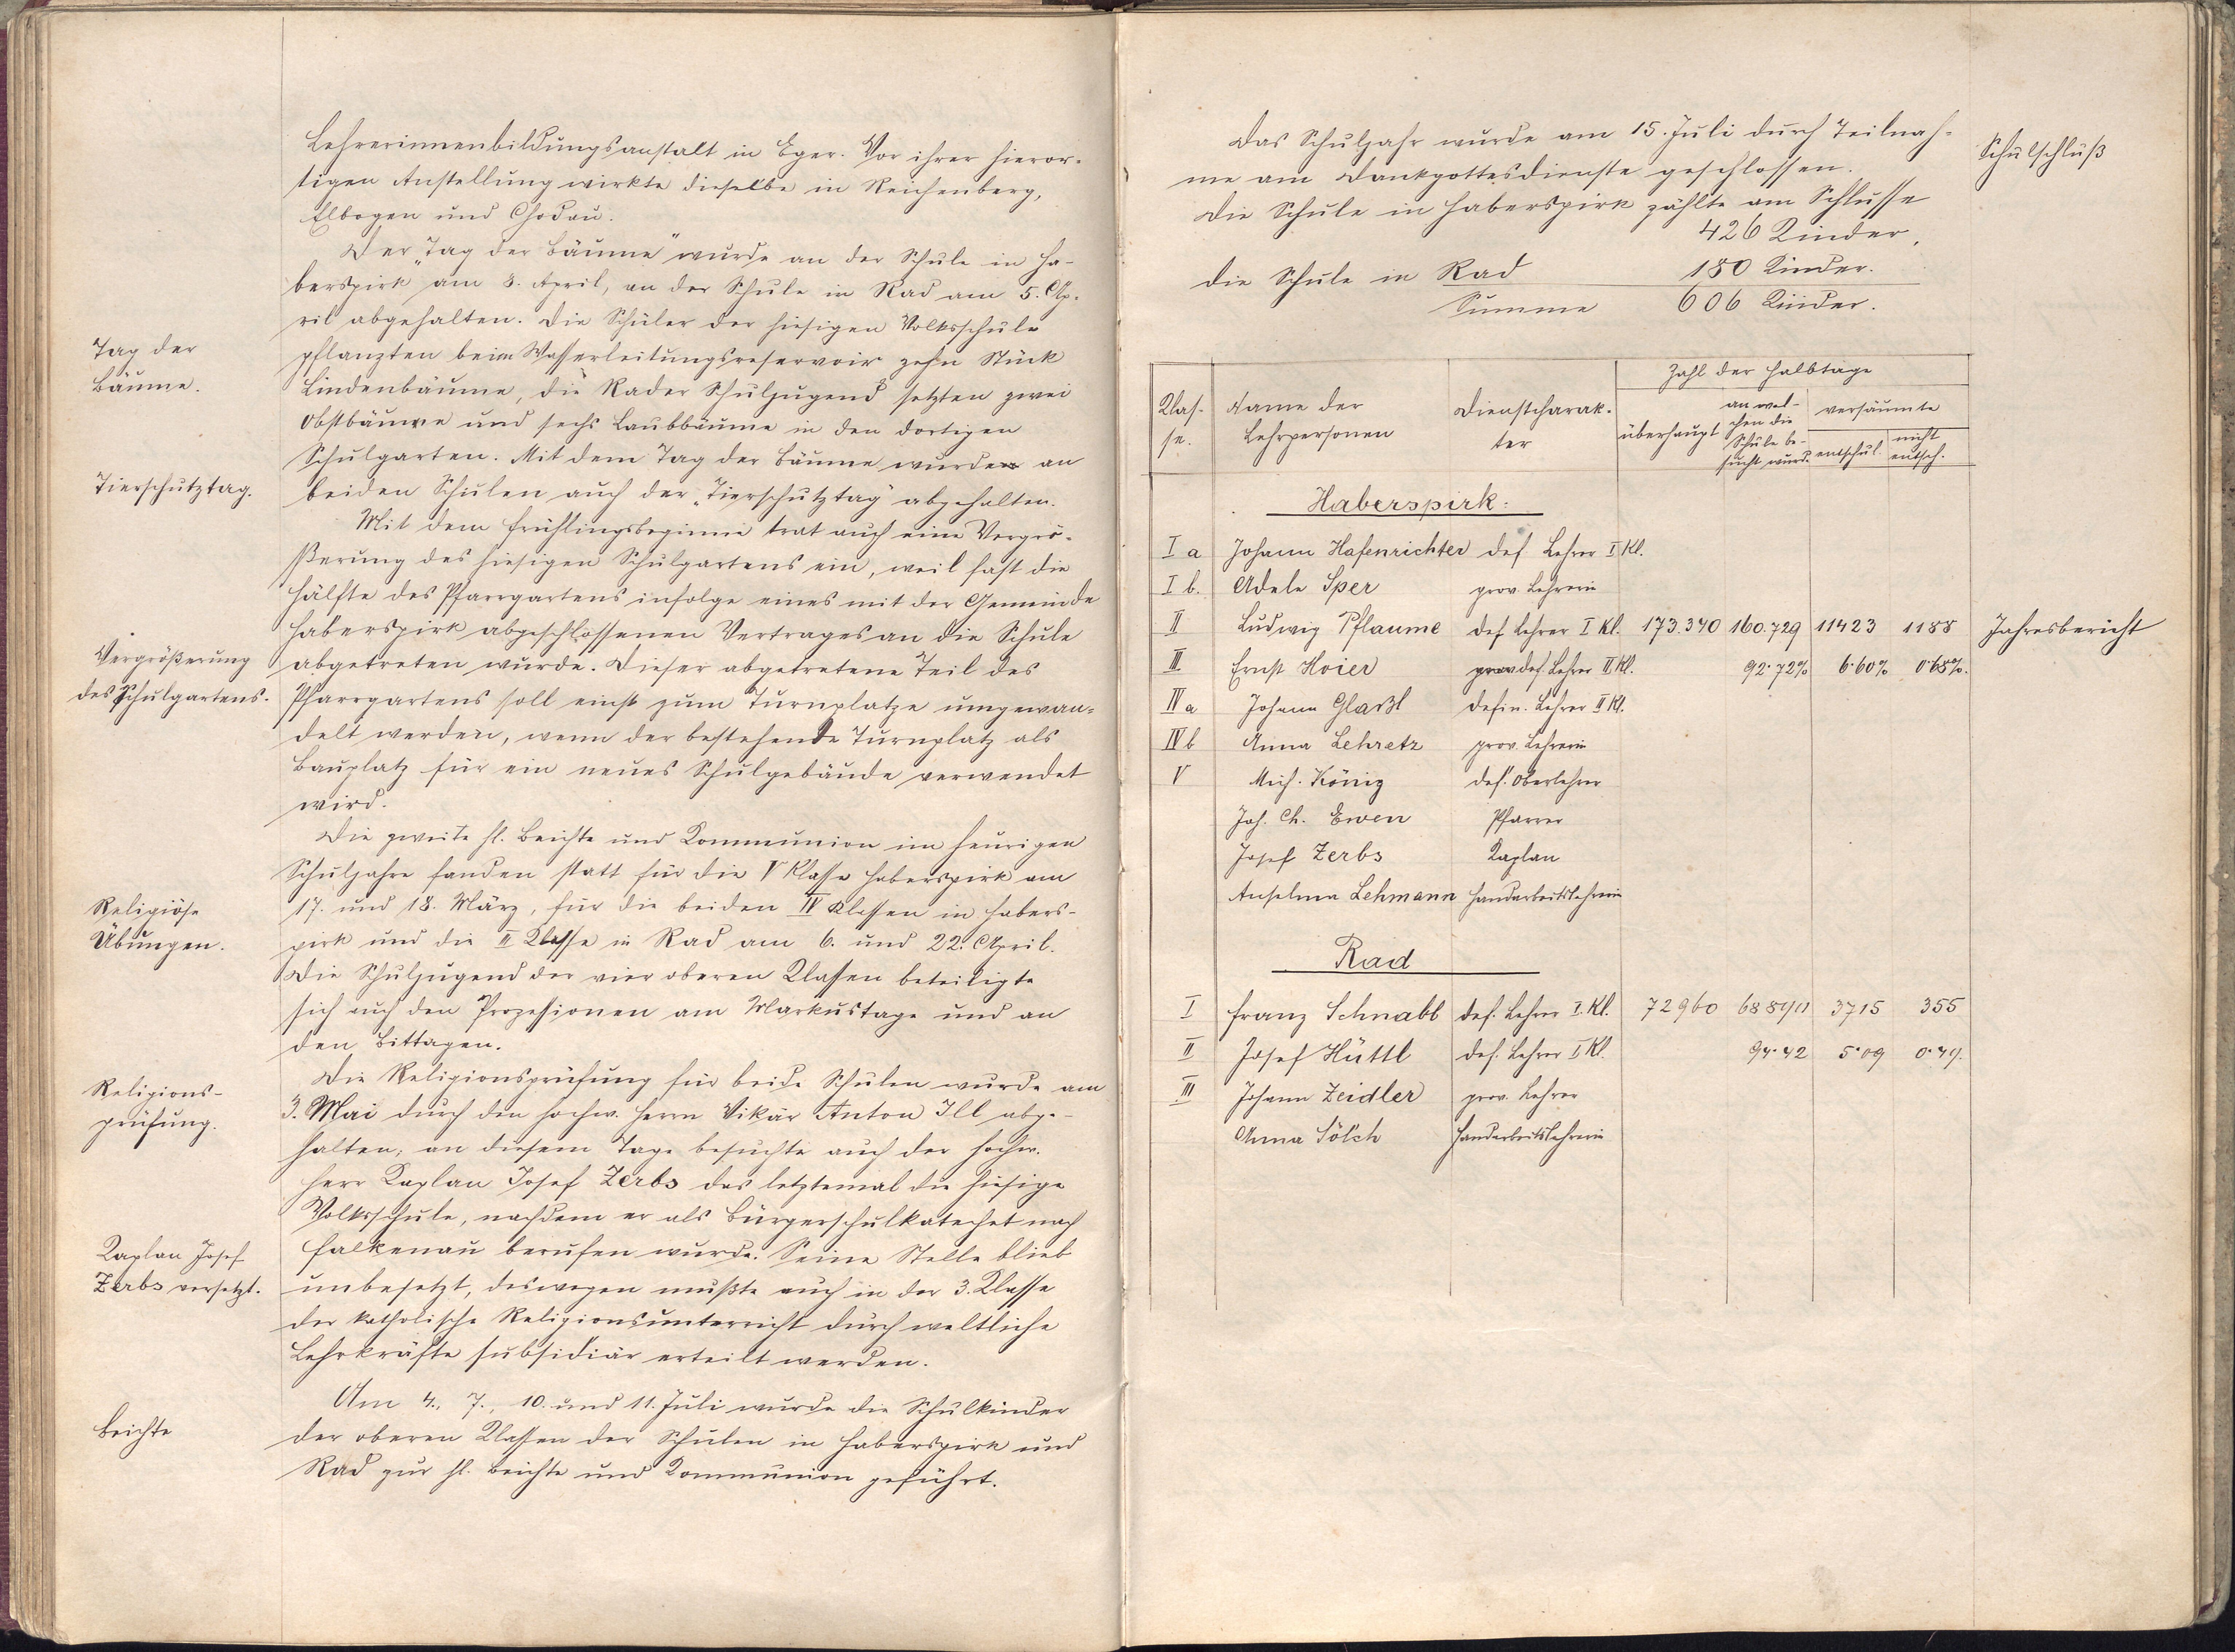 Lehrerinnenbildungsanstalt in Eger. Vor ihrer hieror-
tigen Anstellung wirkte dieselbe in Reichenberg,
Elbogen und Chodau.
Der „Tag der Bäume" wurde an der Schule in Ha-
berspirk am 8. April, an der Schule in Rad am 5. Ap-
ril abgehalten. Die Schüler der hiesigen Volksschule
Tag der
Bäume.
pflanzten beim Wasserleitungsreservoir zehn Stück
Lindenbäume, die Rader Schuljugend setzten zwei
Obstbäume und sechs Laubbäume in den dortigen
Schulgarten. Mit dem Tag der Bäume wurde an
Tierschutztag.
beiden Schulen auch der „Tierschutztag" abgehalten.
Mit dem Frühlingsbeginne trat auch eine Vergrö-
ßerung des hiesigen Schulgartens ein, weil fast die
Hälfte des Pfarrgartens infolge eines mit der Gemeinde
Haberspirk abgeschlossenen Vertrages an die Schule
Vergrößerung
des Schulgartens.
abgetreten wurde. Dieser abgetretene Teil des
Pfarrgartens soll einst zum Turnplatze umgewan-
delt werden, wenn der bestehende Turnplatz als
Bauplatz für ein neues Schulgebäude verwendet
wird.
Die zweite hl. Beichte und Kommunion im heurigen
Schuljahre fanden statt für die V Klasse Haberspirk am
Religiöse
Übungen.
17. und 18. März, für die beiden IV Klassen in Habers-
pirk und die II Klasse in Rad am 6. und 22. April.
Die Schuljugend der vier oberen Klassen beteiligte
sich auch den Prozessionen am Markustage und an
den Bittagen.
Religions-
prüfung.
Die Religionsprüfung für beide Schulen wurde am
3. Mai durch den hochw. Herrn Vikär Anton Ill abge-
halten; an diesem Tage besuchte auch der hochw.
Herr Kaplan Josef Zerbs das letztemal die hiesige
Volksschule, nachdem er als Bürgerschulkatechet nach
Kaplan Josef
Zerbs versetzt.
Falkenau berufen wurde. Seine Stelle blieb
unbesetzt, deswegen mußte auch in der 3. Klasse
der katholische Religionsunterricht durch weltliche
Lehrkräfte subsidiär erteilt werden.
Beichte
Am 4., 7., 10. und 11. Juli wurde die Schulkinder
der oberen Klassen der Schulen in Haberspirk und
Rad zur hl. Beichte und Kommunion geführt.
Das Schuljahr wurde am 15. Juli durch Teilnah-
Schulschluß
me am Dankgottesdienste geschlossen.
Die Schule in Haberspirk zählte am Schlusse
426 Kinder,
die Schule in Rad 180 Kinder.
Summe 606 Kinder.
Klas-
se.
Name der
Lehrpersonen
Dienstcharak-
ter
Zahl der Halbtage
überhaupt
an wel-
chen die
Schule be-
sucht wurd.
versäumte
entschul.
nicht
entsch.
Haberspirk:
I a Johann Hafenrichter def. Lehrer I Kl.
I b. Adele Sper prov. Lehrerin
II Ludwig Pflaume def Lehrer I Kl. 173.340 160.729 11423 1188 Jahresbericht
III Ernst Hoier prov def. Lehrer II Kl. 92·72% 6·60% 0·68%.
IV a Johann Glaßl defin. Lehrer II Kl.
IV b Anna Lehretz prov. Lehrerin
V Mich. König def. Oberlehrer
Joh. Ch. Ewen Pfarrer
Josef Zerbs Kaplan
Anselma Lehmann Handarbeitslehrerin
Rad
I Franz Schnabl def. Lehrer I. Kl. 72960 68890 3715 355
II Josef Hüttl def. Lehrer I Kl. 94·42 5·09 0·49.
III Johann Zeidler prov. Lehrer
Anna Sölch Handarbeitslehrerin